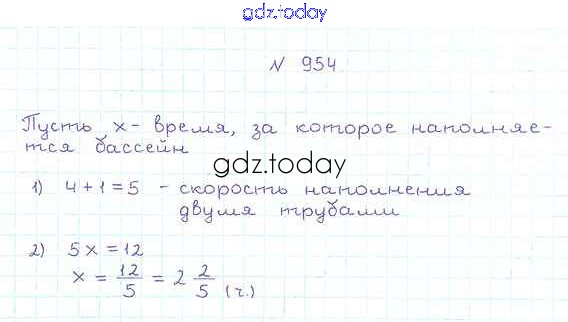 gdz.today
№ 954
Пусть x - время, за которое наполняе-
тся бассейн
gdz.today
1) 4 + 1 = 5 - скорость наполнения
двумя трубами
2) 5x = 12
x = 12/5 = 2 2/5 (ч.)